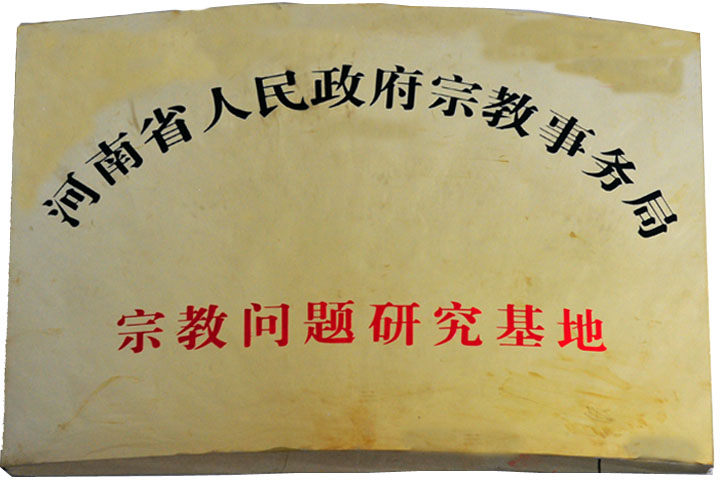 河南省人民政府宗教事务局
宗教问题研究基地